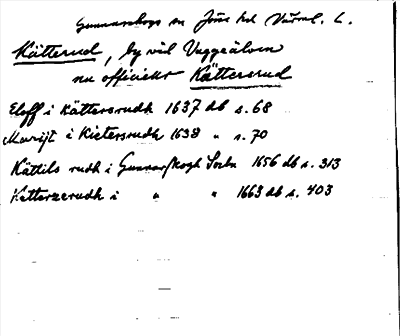 Gunnarskogs sn Jösse hd Värml. L.
Kätterud, by vid Vaggeälven
nu officiellt Kättersrud
Eloff i Kättersrudh 1637 db s. 68
Marijt i Kietersrudh 1638 " s. 70
Kättils rudh i Gunnarskogh Sochn 1656 db s. 313
Ketterzerudh i " " 1663 db s. 403